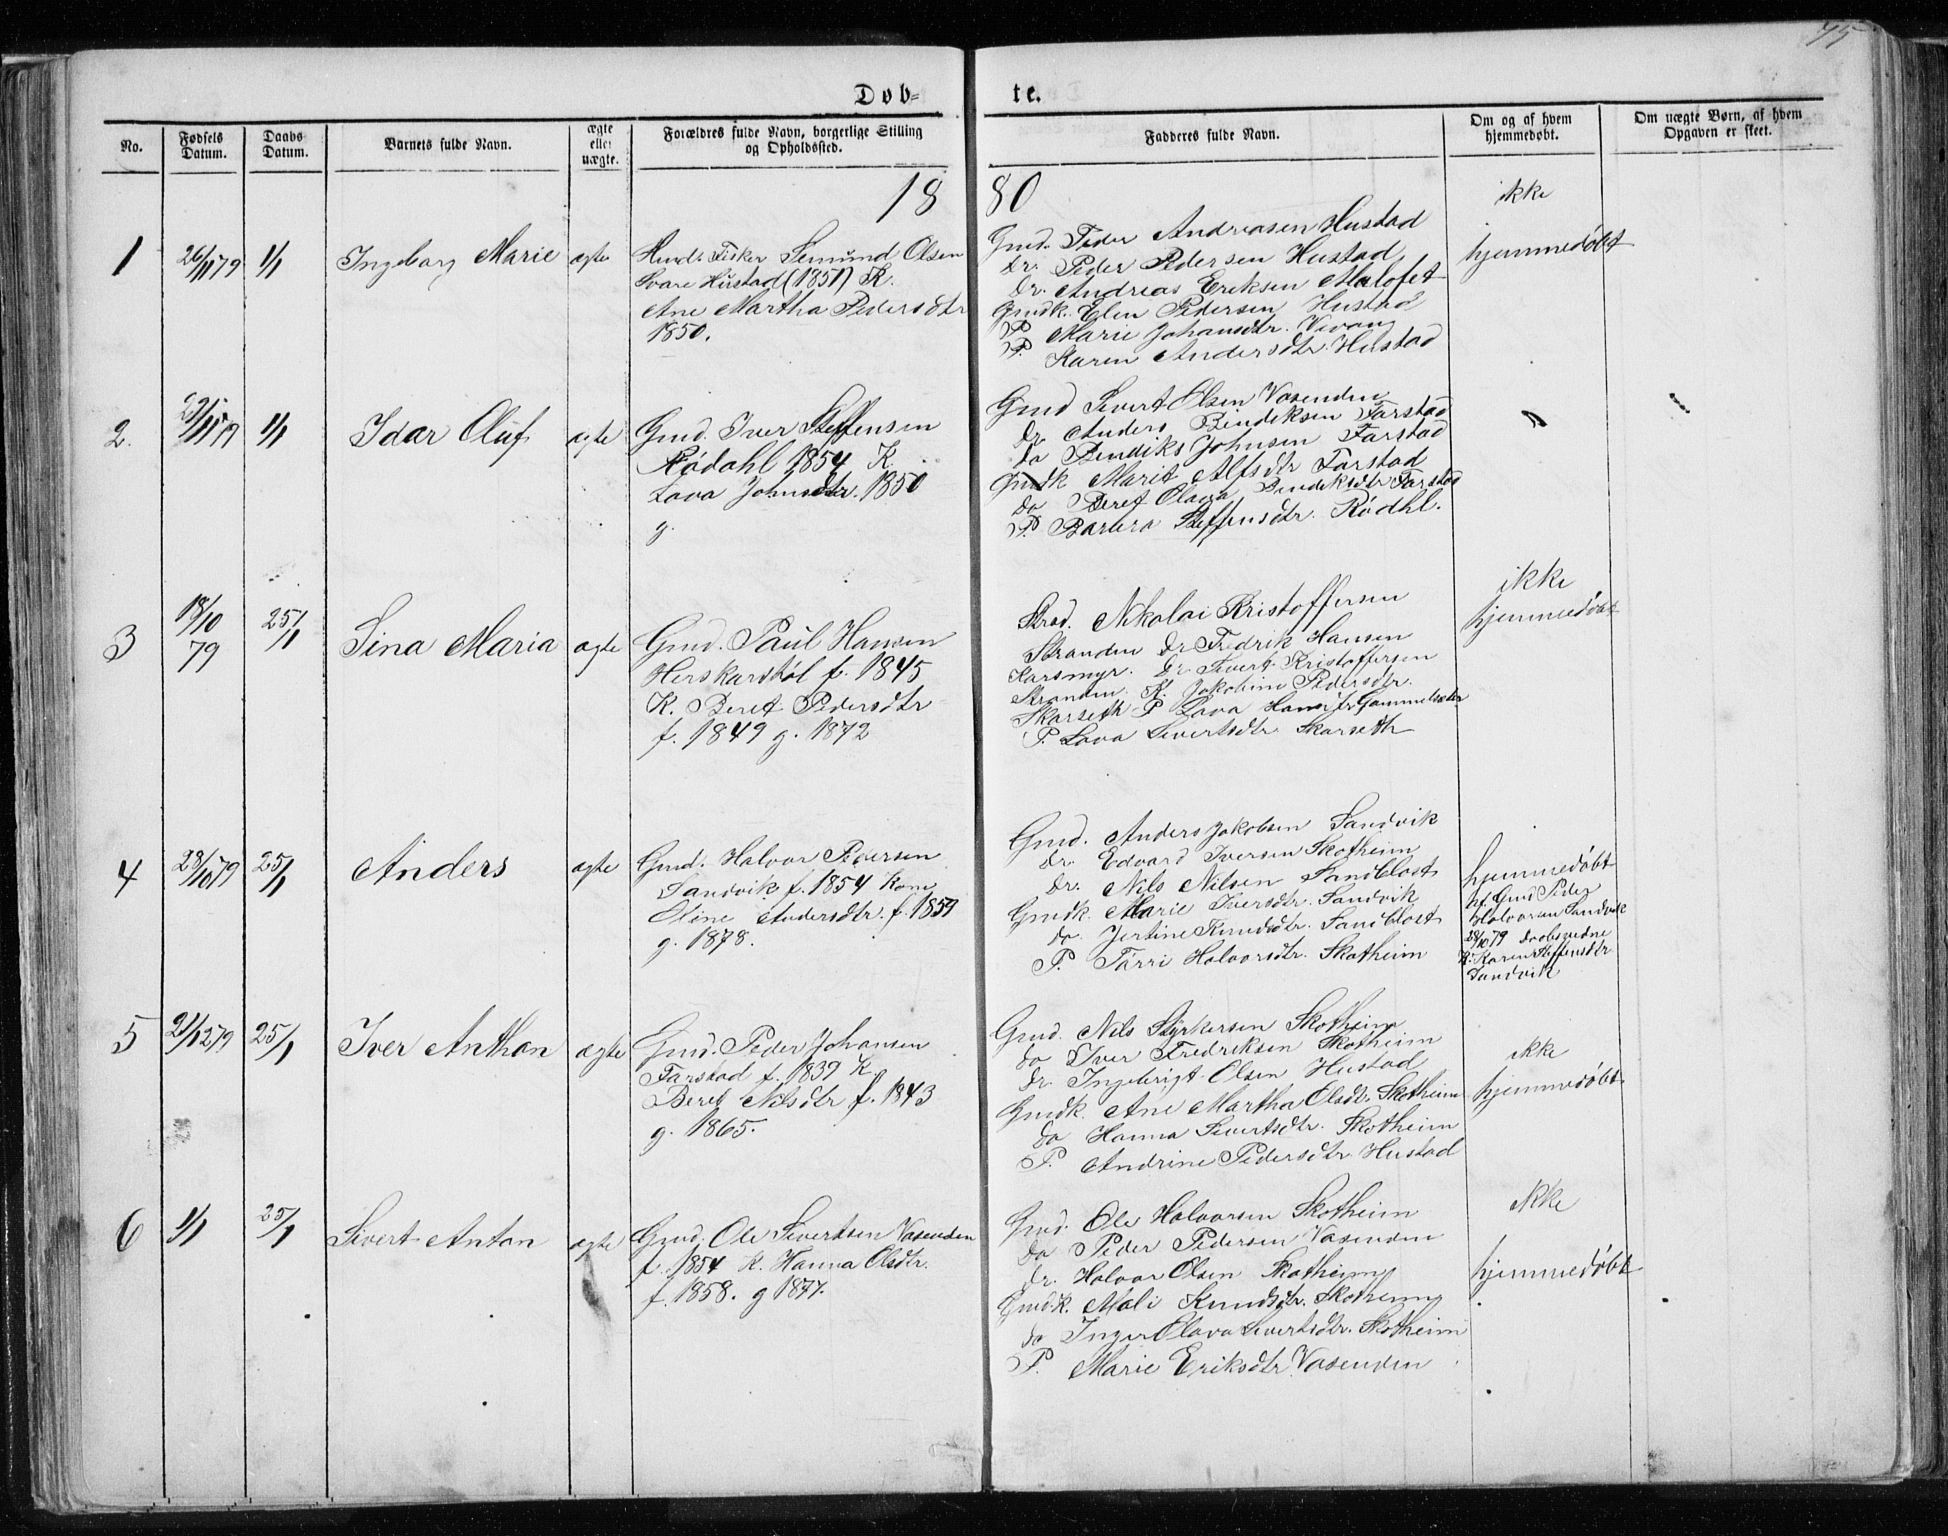 75
Døb= te.
No.
Fødsels Datum.
Daabs Datum.
Barnets fulde Navn.
ægte eller uægte.
Forældres fulde Navn, borgerlige Stilling og Opholdssted.
Fadderes fulde Navn.
Om og af hvem hjemmedøbt.
Om uægte Børn, af hvem Opgaven er skeet.
18 80
1
26/11 79
1/1
Ingeborg Marie
ægte
Fisker Semund Olsen
Hustad (1851) K.
Ane Martha Pedersdtr
1850.
Gmd. Peder Andreasen Hustad
Do. Peder Pedersen Hustad
Do. Andreas Eriksen Malefet
Gmdk. Elen Pedersen Hustad
P. Marie Johansdtr. Vevang
P. Karen Andersdtr. Hustad
ikke
hjemmedøbt
2.
1/1
Idar Oluf
ægte
Gmd. Iver Steffensen
Rødahl 1854 K.
Lava Johnsdtr. 1850
g.
Gmd Sivert Olsen Vasenden
Do. Anders Bendiksen Farstad
Do Bendiks Johnsen Farstad
Gmdk Marit Alfsdtr Farstad
Do Beret Olava Bendiksdtr Farstad
P. Barbra Steffensdtr. Rødhl.
3
18/10
79
25/1
Sina Maria
ægte
Gmd. Paul Hansen
Herskarstøl f. 1845
K. Beret Pedersdtr
f. 1849 g. 1872
Strd. Nikolai Kristoffersen
Stranden Do Fredrik Hansen
Karsmyr. Do. Sivert Kristoffersen
Stranden. K. Jakobine Pedersdtr.
Skarseth P. Lava Hansdtr Gammelsæter
P. Lava Sivertsdtr Skarseth
ikke
hjemmedøbt
4
28/10 79
25/1
Anders
ægte
Gmd. Halvor Pedersen
Sandvik f. 1854 Kone
Oline Andersdtr. f. 1859
g. 1878.
Gmd. Anders Jakobsen Sandvik
Do. Edvard Iversen Skotheim
Do. Nils Nilsen Sandblost
Gmdk. Marie Iversdtr. Sandvik
do. Jertine Knudsdtr. Sandblost
P. Torri Halvorsdtr. Skotheim
hjemmedøbt
af Gmd Peder
Halvorsen Sandvik
28/10 79 Daabsvidne
K. Karen Steffensdtr
Sandvik
5
21/12 79
25/1
Iver Anthon
ægte
Gmd. Peder Johansen
Farstad f. 1839 K.
Beret Nilsdtr f. 1843
g. 1865.
Gmd. Nils Styrkersen Skotheim
Do Iver Fredriksen Skotheim
Do. Ingebrigt Olsen Hustad
Gmdk. Ane Martha Olsdtr. Skotheim
Do Hanna Sivertsdtr. Skotheim
P. Andrine Pedersdtr. Hustad
ikke
hjemmedøbt
6
1/1
25/1
Sivert Anton
ægte
Gmd. Ole Sivertsen Vasenden
f. 1854 K. Hanna Olsdtr.
f. 1858. g 1877.
Gmd. Ole Halvorsen Skotheim
Do Peder Pedersen Vasenden
Do. Halvor Olsen Skotheim
Gmdk. Mali Knudsdtr. Skotheim
Do Inger Olava Sivertsdtr. Skotheim
P. Marie Eriksdtr Vasenden
ikke
hjemmedøbt